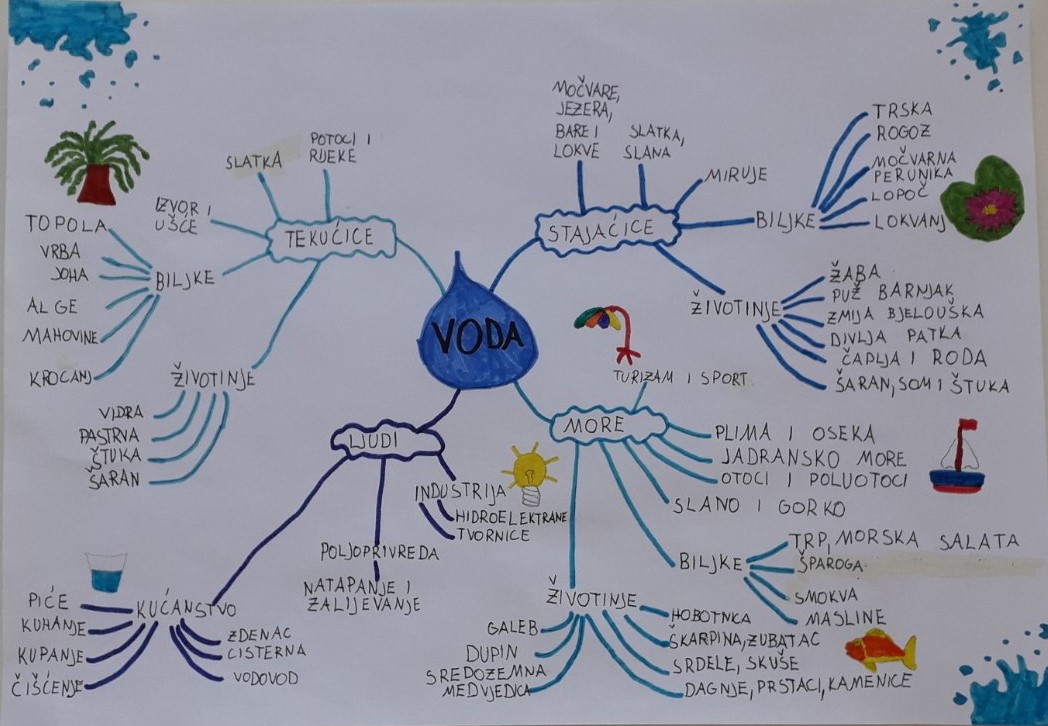 VODA
TEKUĆICE
SLATKA
POTOCI I
RIJEKE
IZVOR I
UŠĆE
BILJKE
TOPOLA
VRBA
JOHA
ALGE
MAHOVINE
KROCANJ
ŽIVOTINJE
VIDRA
PASTRVA
ŠTUKA
ŠARAN
STAJAĆICE
MOČVARE,
JEZERA,
BARE I
LOKVE
SLATKA,
SLANA
MIRUJE
BILJKE
TRSKA
ROGOZ
MOČVARNA
PERUNIKA
LOPOČ
LOKVANJ
ŽIVOTINJE
ŽABA
PUŽ BARNJAK
ZMIJA BJELOUŠKA
DIVLJA PATKA
ČAPLJA I RODA
ŠARAN, SOM I ŠTUKA
LJUDI
INDUSTRIJA
HIDROELEKTRANE
TVORNICE
POLJOPRIVREDA
NATAPANJE I
ZALIJEVANJE
KUĆANSTVO
PIĆE
KUHANJE
KUPANJE
ČIŠĆENJE
ZDENAC
CISTERNA
VODOVOD
MORE
TURIZAM I SPORT
PLIMA I OSEKA
JADRANSKO MORE
OTOCI I POLUOTOCI
SLANO I GORKO
BILJKE
TRP, MORSKA SALATA
ŠPAROGA
SMOKVA
MASLINE
ŽIVOTINJE
GALEB
DUPIN
SREDOZEMNA
MEDVJEDICA
HOBOTNICA
ŠKARPINA, ZUBATAC
SRDELE, SKUŠE
DAGNJE, PRSTACI, KAMENICE